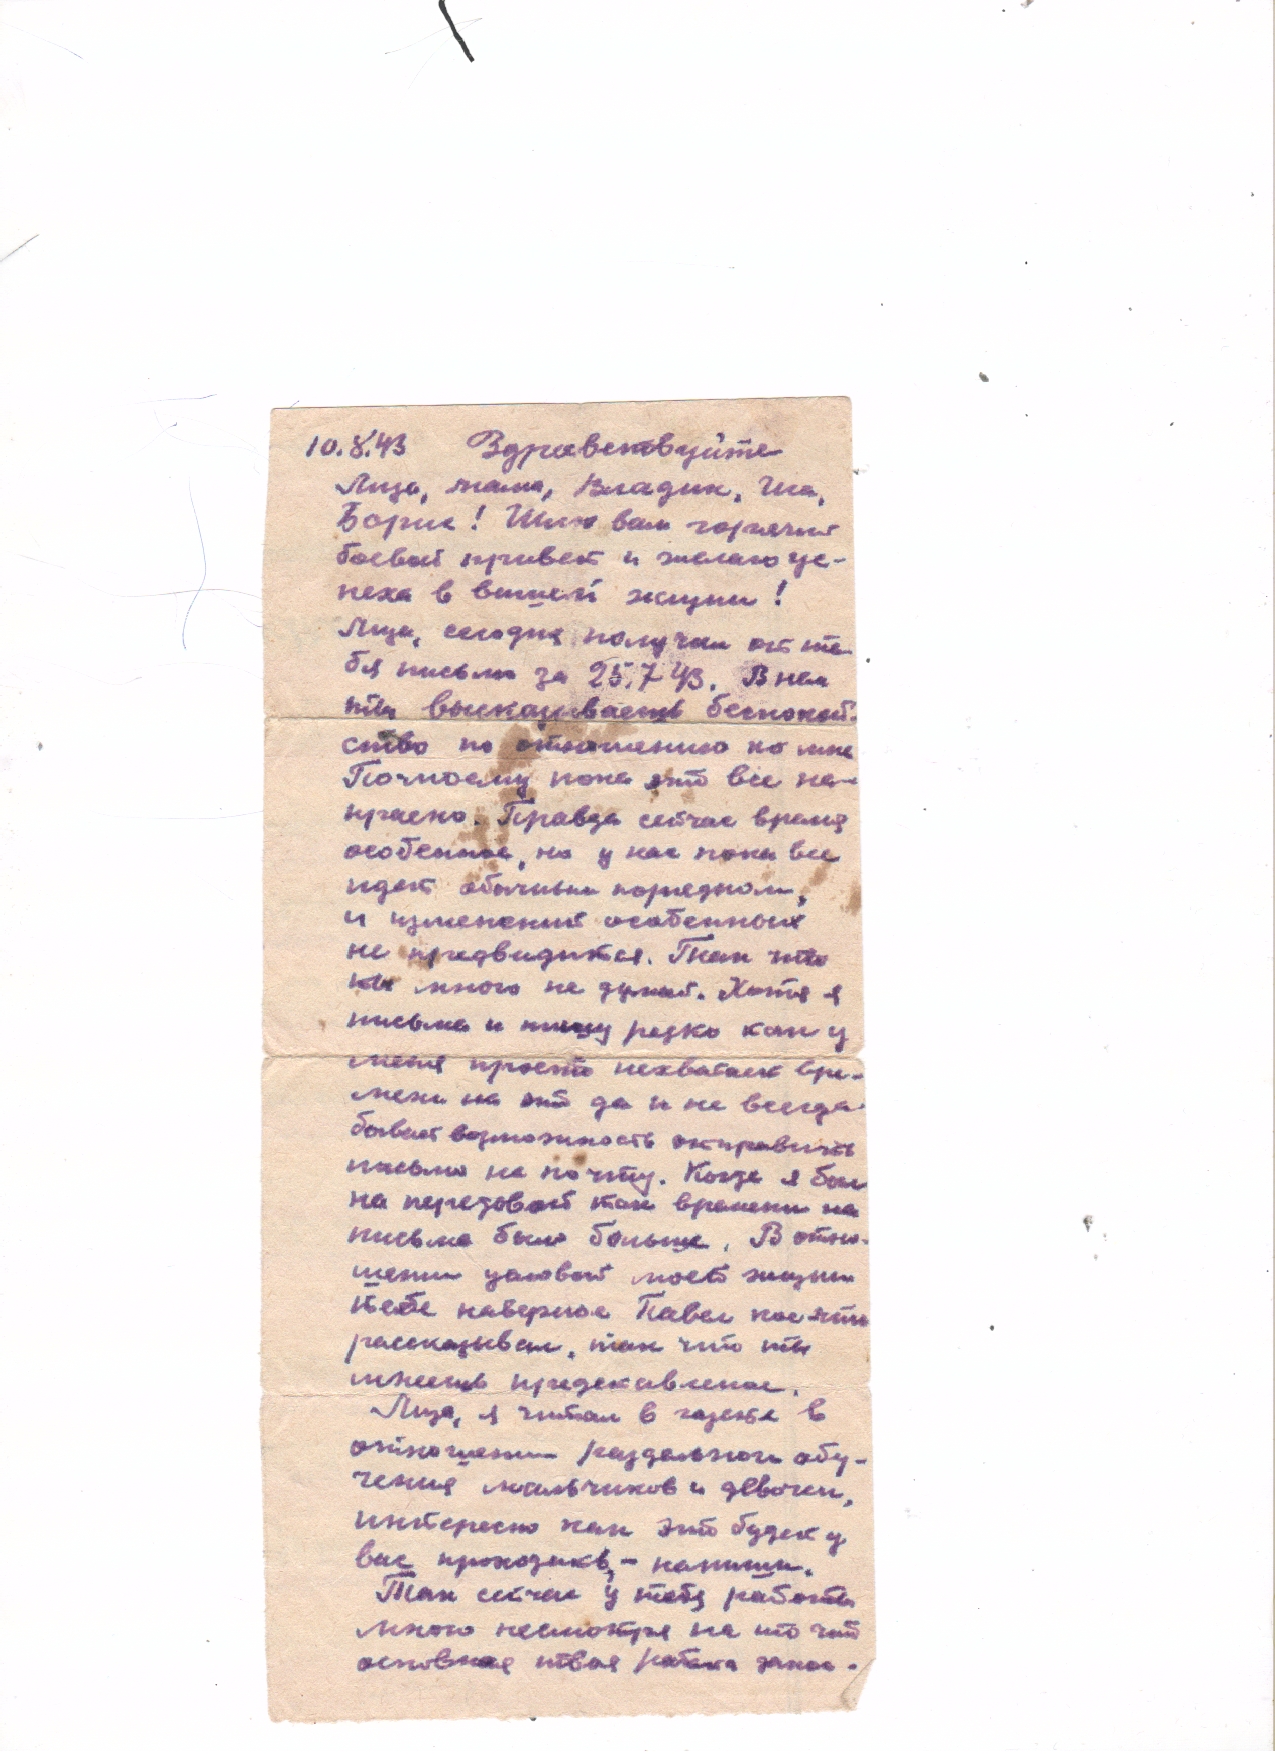 10.8.43 Здравствуйте
Лиза, мама, Владик, Ия,
Борис! Шлю вам горячий
боевой привет и желаю ус-
пеха в вашей жизни!
Лиза, сегодня получил от те-
бя письмо за 25.7.43. В нем
ты высказываешь беспокой-
ство по отношению ко мне
По-моему пока это все на-
прасно. Правда сейчас время
особенное, но у нас пока все
идет обычным порядком,
и изменений особенных
не предвидится. Так что
ты много не думай. Хотя я
письма и пишу редко как у
меня просто нехватает вре-
мени на это да и не всегда
бывает возможность отправить
письмо на почту. Когда я был
на передовой так времени на
письма было больше. В отно-
шении условий моей жизни
тебе наверное Павел кое-что
рассказывал, так что ты
имеешь представление.
Лиза, я читал в газете в
отношении раздельного обу-
чения мальчиков и девочек,
интересно как это будет у
вас проходить, - напиши.
Так сейчас у тебя работы
много несмотря на то что
основная твоя работа закон-